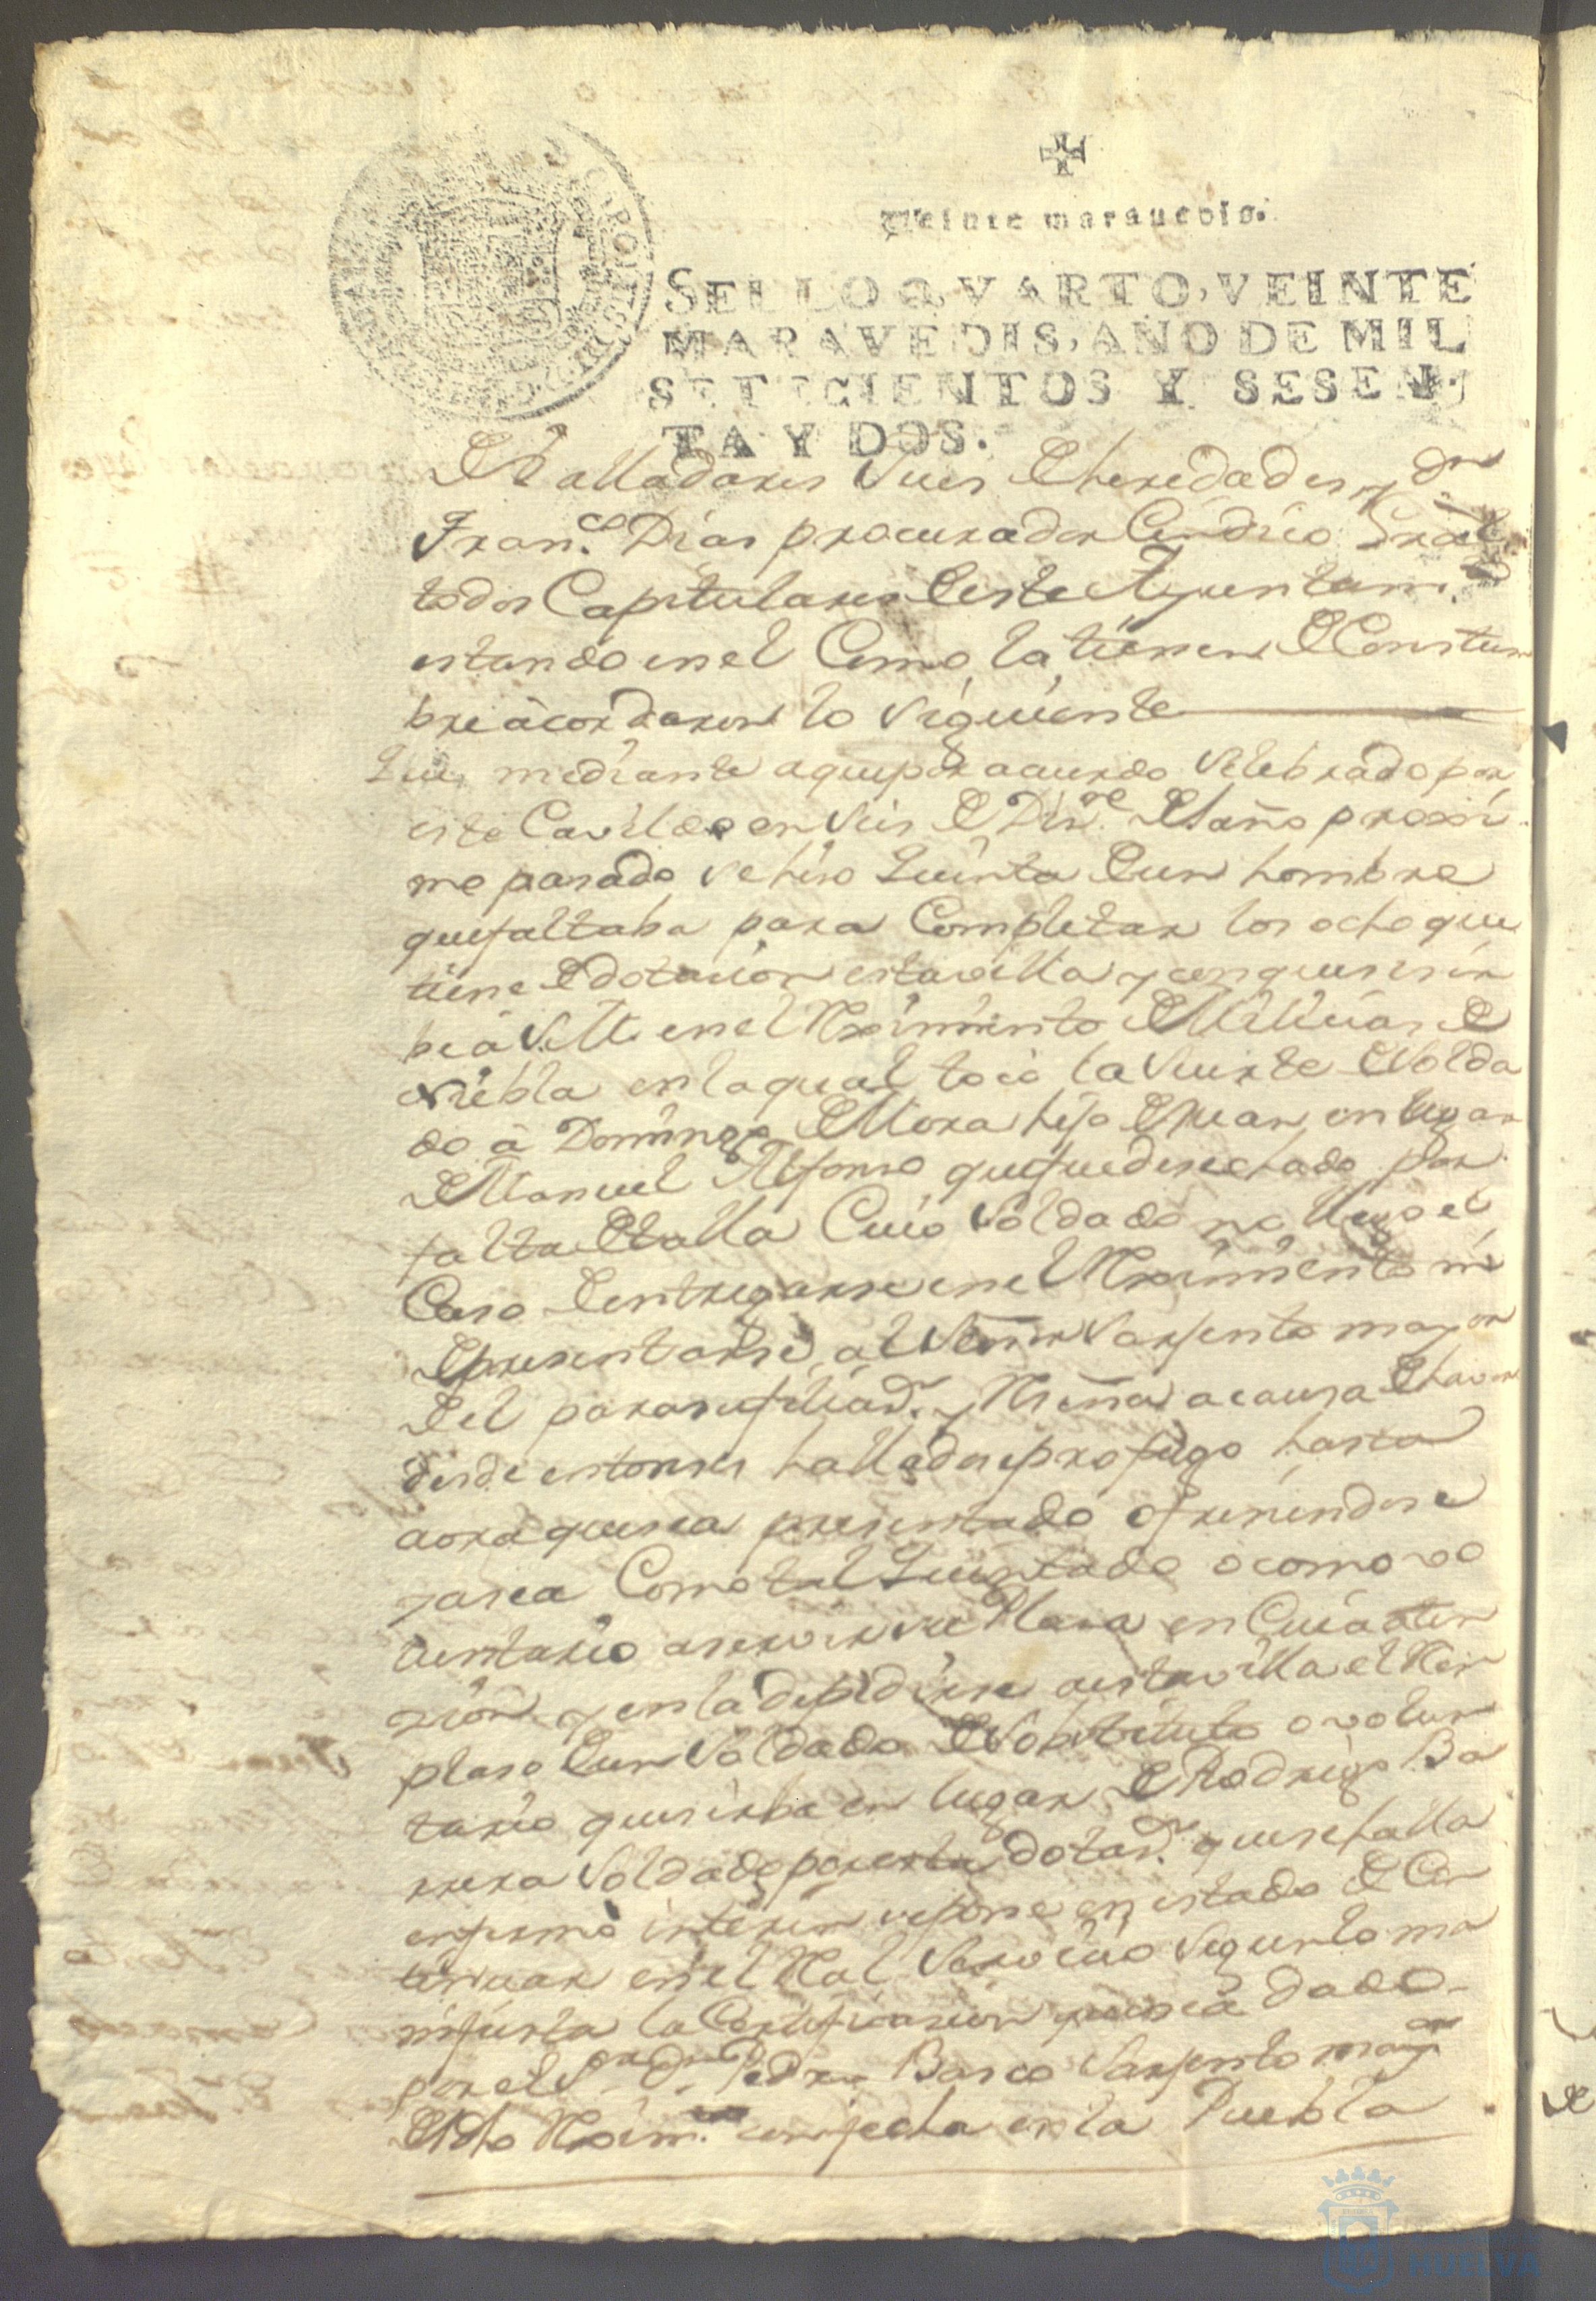 Veinte maravedis.
SELLO QVARTO, VEINTE
MARAVEDIS, AÑO DE MIL
SETECIENTOS Y SESEN-
TA Y DOS.
Valladares Jues de heredades, y Dn
Franco. Dias procurador Cindico Gral
todos Capitulares deeste Ayuntam.to
estando en el Como la tienen de Constum
bre acordaron lo siguiente
Que mediante a que por acuerdo selebrado por
este Cavildo en seis de Dizre. del año proxi-
mo pasado se hiso Quinta de un hombre
que faltaba para Completar los ocho que
tiene de dotacion esta villa y con que sir
be a S.M. en el Reximiento de Milicias de
Niebla en la qual tocó la suerte de Solda
do a Domingo de Mora hijo de Juan, en lugar
de Manuel Alfonso que fue desechado por
falta de talla Cuio Soldado no llegó el
Caso de entregarse en el Reximiento ni
de presentarse al Señor Sarjento mayor
del para su filiad.n y Reseña a causa de haver
desde entonses halladose profugo hasta
aora que sea presentado ofreciendose
ya sea Como tal Quintado o como vo
luntario a servir su Plasa en Cuia aten
zion y en la de pedirse a esta villa el Rem
plaso de un Soldado de Sobstituto o volun
tario que sirba en lugar de Rodrigo Ba
rrera Soldado por esta dotas.n que se halla
enfermo interin se pone en estado de Con
tinuar en el Ral Servicio segun lo ma
nifiesta la Certificasion que se a dado
por el Sr. Dn. Pedro Barco Sarjento mayr.
de dho Rexim.to con fecha en la Puebla
HUELVA